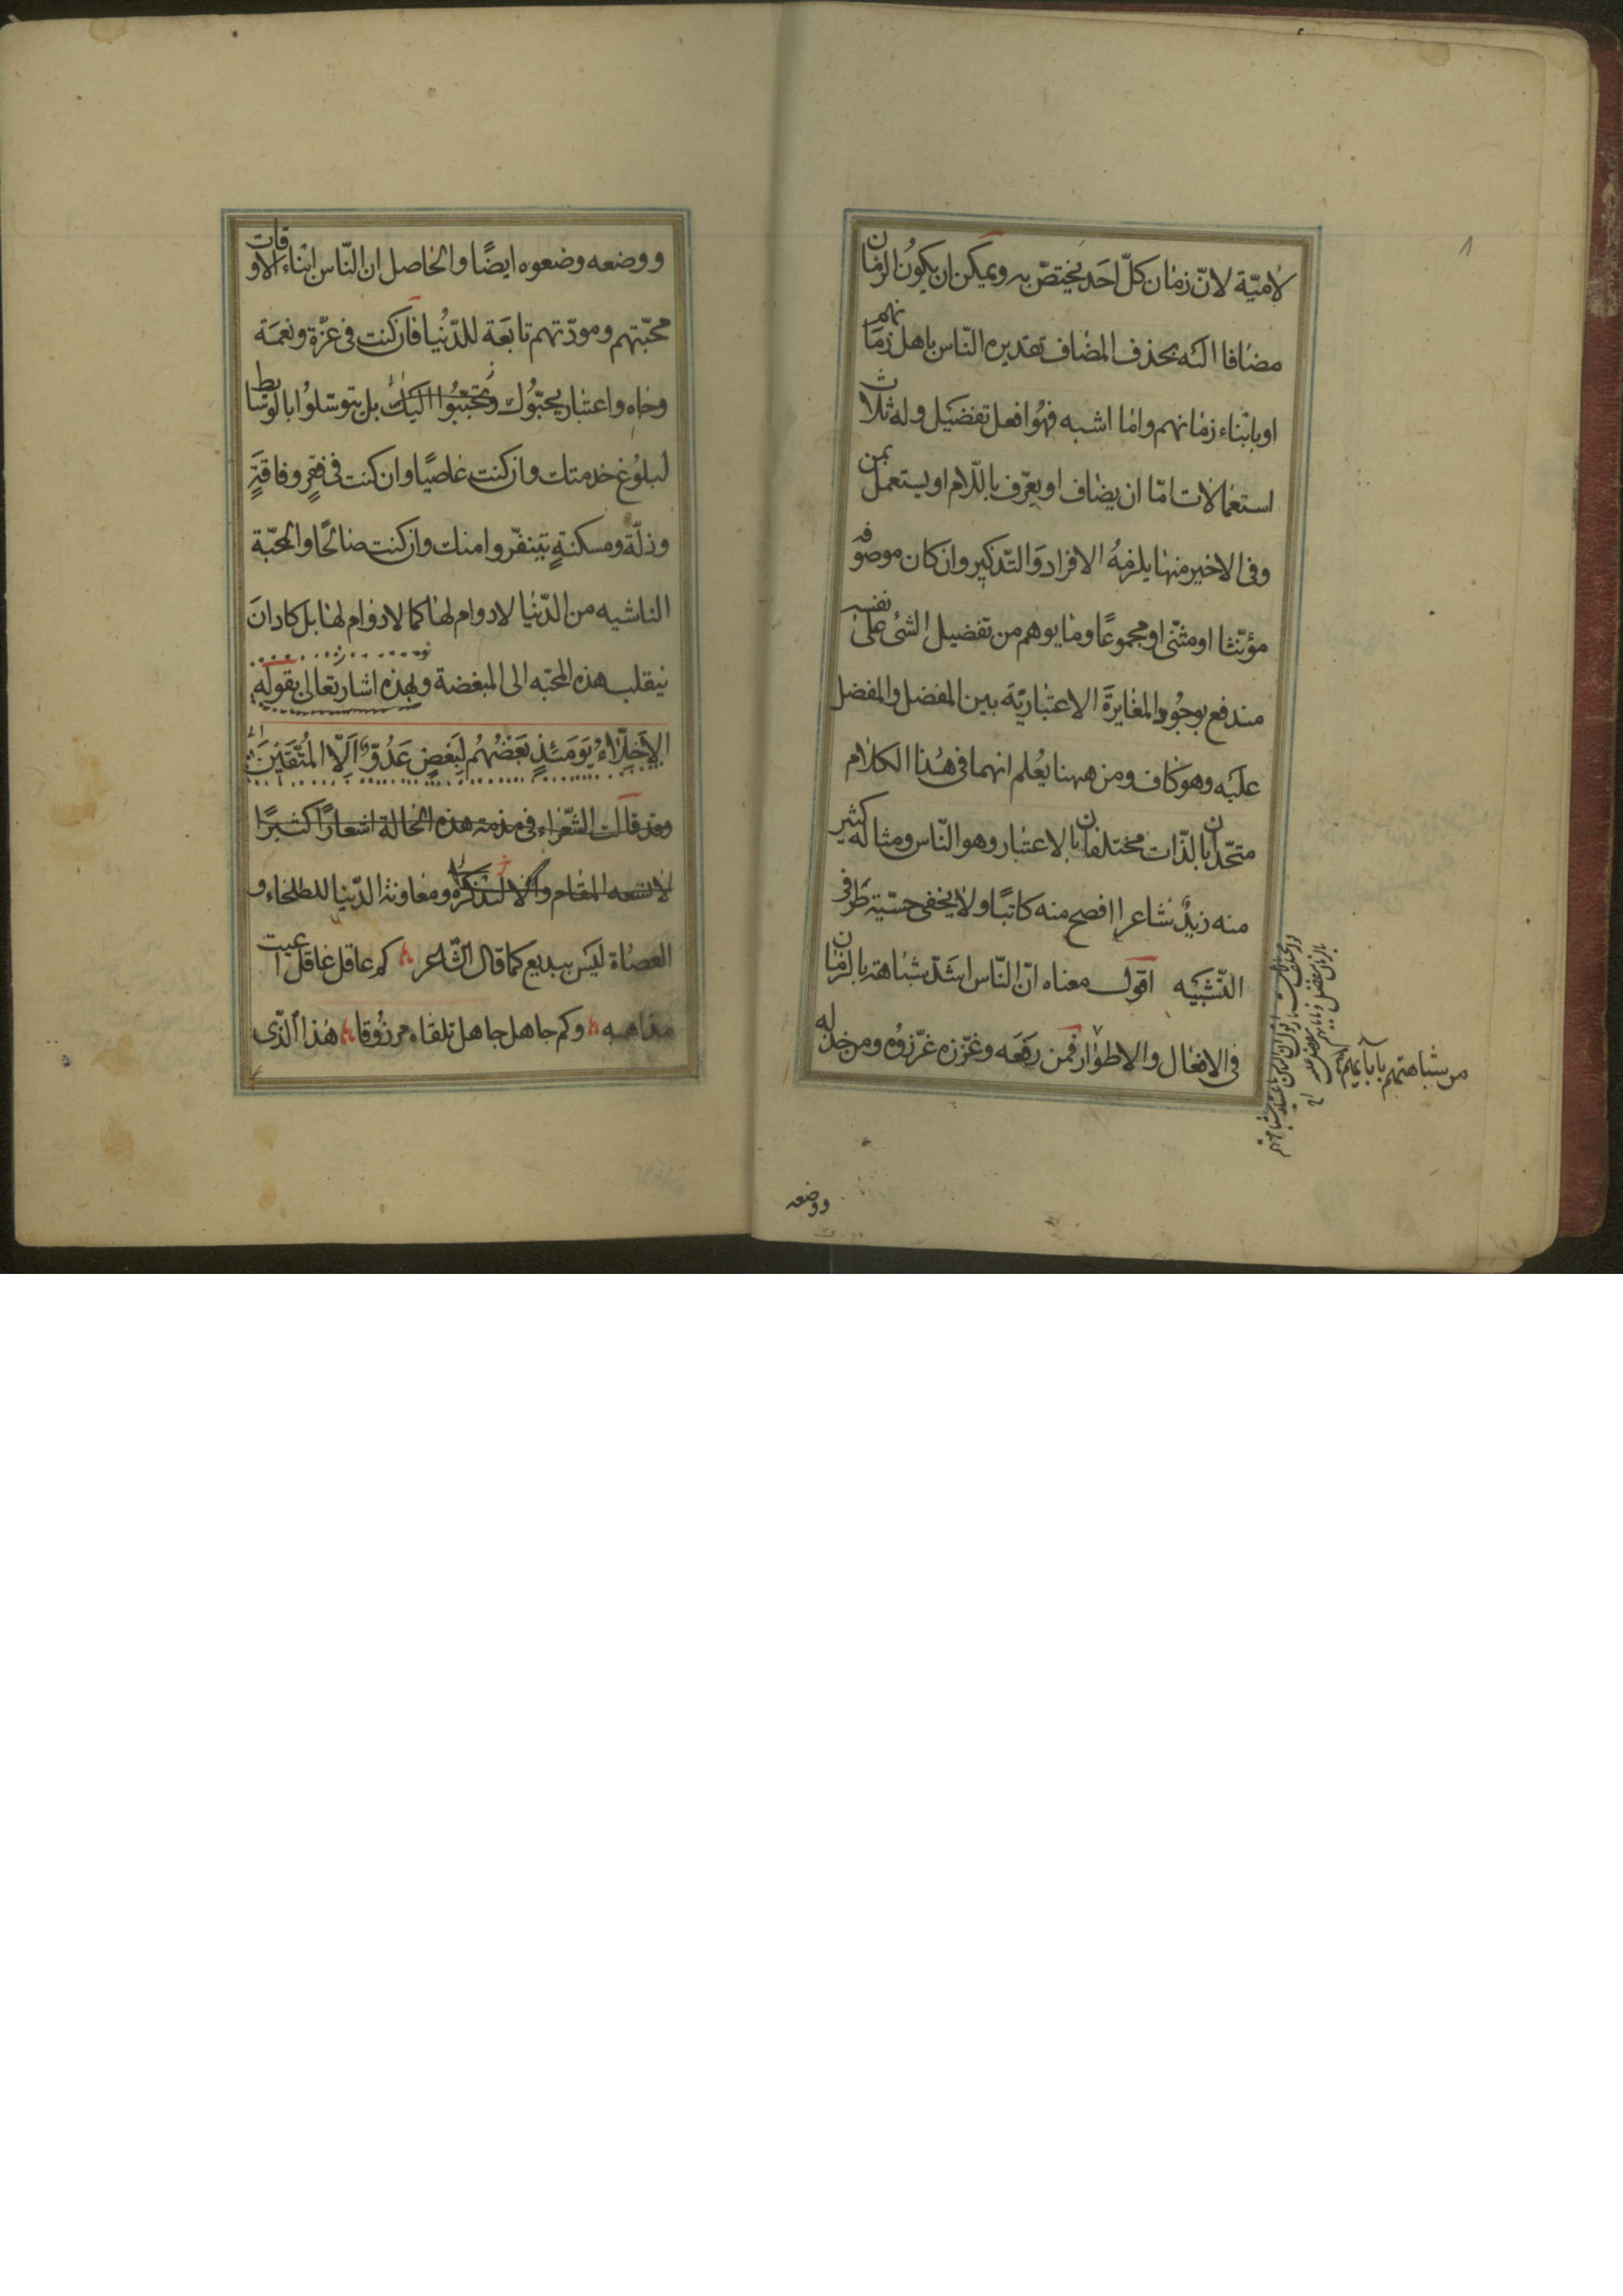 لامیّة لانّ زمان كلّ احَد یختصّ به ویمكن ان یكون الزمان
مضافا الیه بحذف المضاف تقدیره النّاس باهل زمانهم
او بابناء زمانهم واما اشبه فهُوَ افعل تفضیل وله ثلاث
استعمالات امّا ان یضاف او یعرّف باللّام او یستعمل بمن
وفی الاخیر منها یلزمهُ الافراد وَالتّذكیر وان كان موصوفه
مؤنّثا او مثنّی او مجموعًا وما یوهم من تفضیل الشئ علی نفسه
مندفع بوجُود المغایرَة الاعتباریّة بین المفضل والمفضل
علیَه وهو كاف ومن ههنا یعُلم انهما فی هُذا الكلام
متحّدان بالذّات مختلفان بالاعتبار وهو النّاس ومثاله كثیر
منه زیدٌ شاعرا افصح منه كاتبًا ولا یخفی حسّیّة طَرَفی
التّشبیَه اقول معناه انّ النّاس اشَدّ شباهة بالزمان
فی الافعال والاطوار فمن رفعَه وعّززه عّززوُه ومن خذله
من شباهتهم بآبائهم
ووضعه
ووضعه وضعوه ایضًا والحاصل ان النّاس ابناء الاوقات
محبّتهم ومودّتهم تابعَة للدّنُیا فان كنت فی عّزة ونعمَة
وجاه واعتبار یحبّوُك وتحبّبُوا الیَك بل یتوسّلوُا بالوسَایط
لبلوُغ خدمتك وان كنت عاصیًا وان كنت فی فقرٍ وفاقَةٍ
وذلّة ومسكنةٍ یتنفّروا منك وان كنت صالحًا والمحبّة
الناشیه من الدّنیا لا دوام لها كما لا دوام لها بل كاد انَ
ینقلب هذه المحبّه الی المبغضة ولهذه اشار تعالی بقوله
الاَخِلّاءُ یَومَئذٍ بَعَضُهُم لِبَعَضٍ عَدُوّ اِلّا المُتَّقیَن
وقد قالت الشّعراء فی مذمّة هذه الحالة اشعارًا كثیرًا
لا تسعه المقام والا لنذكره ومعاونة الدّنیا للطلحاء و
العصاة لیَس ببدیع كما قال الشّاعر كم عاقل عاقل اعیت
مذاهبه وكم جاهل جاهل تلقاه مرزوُقا هُذا الّذی